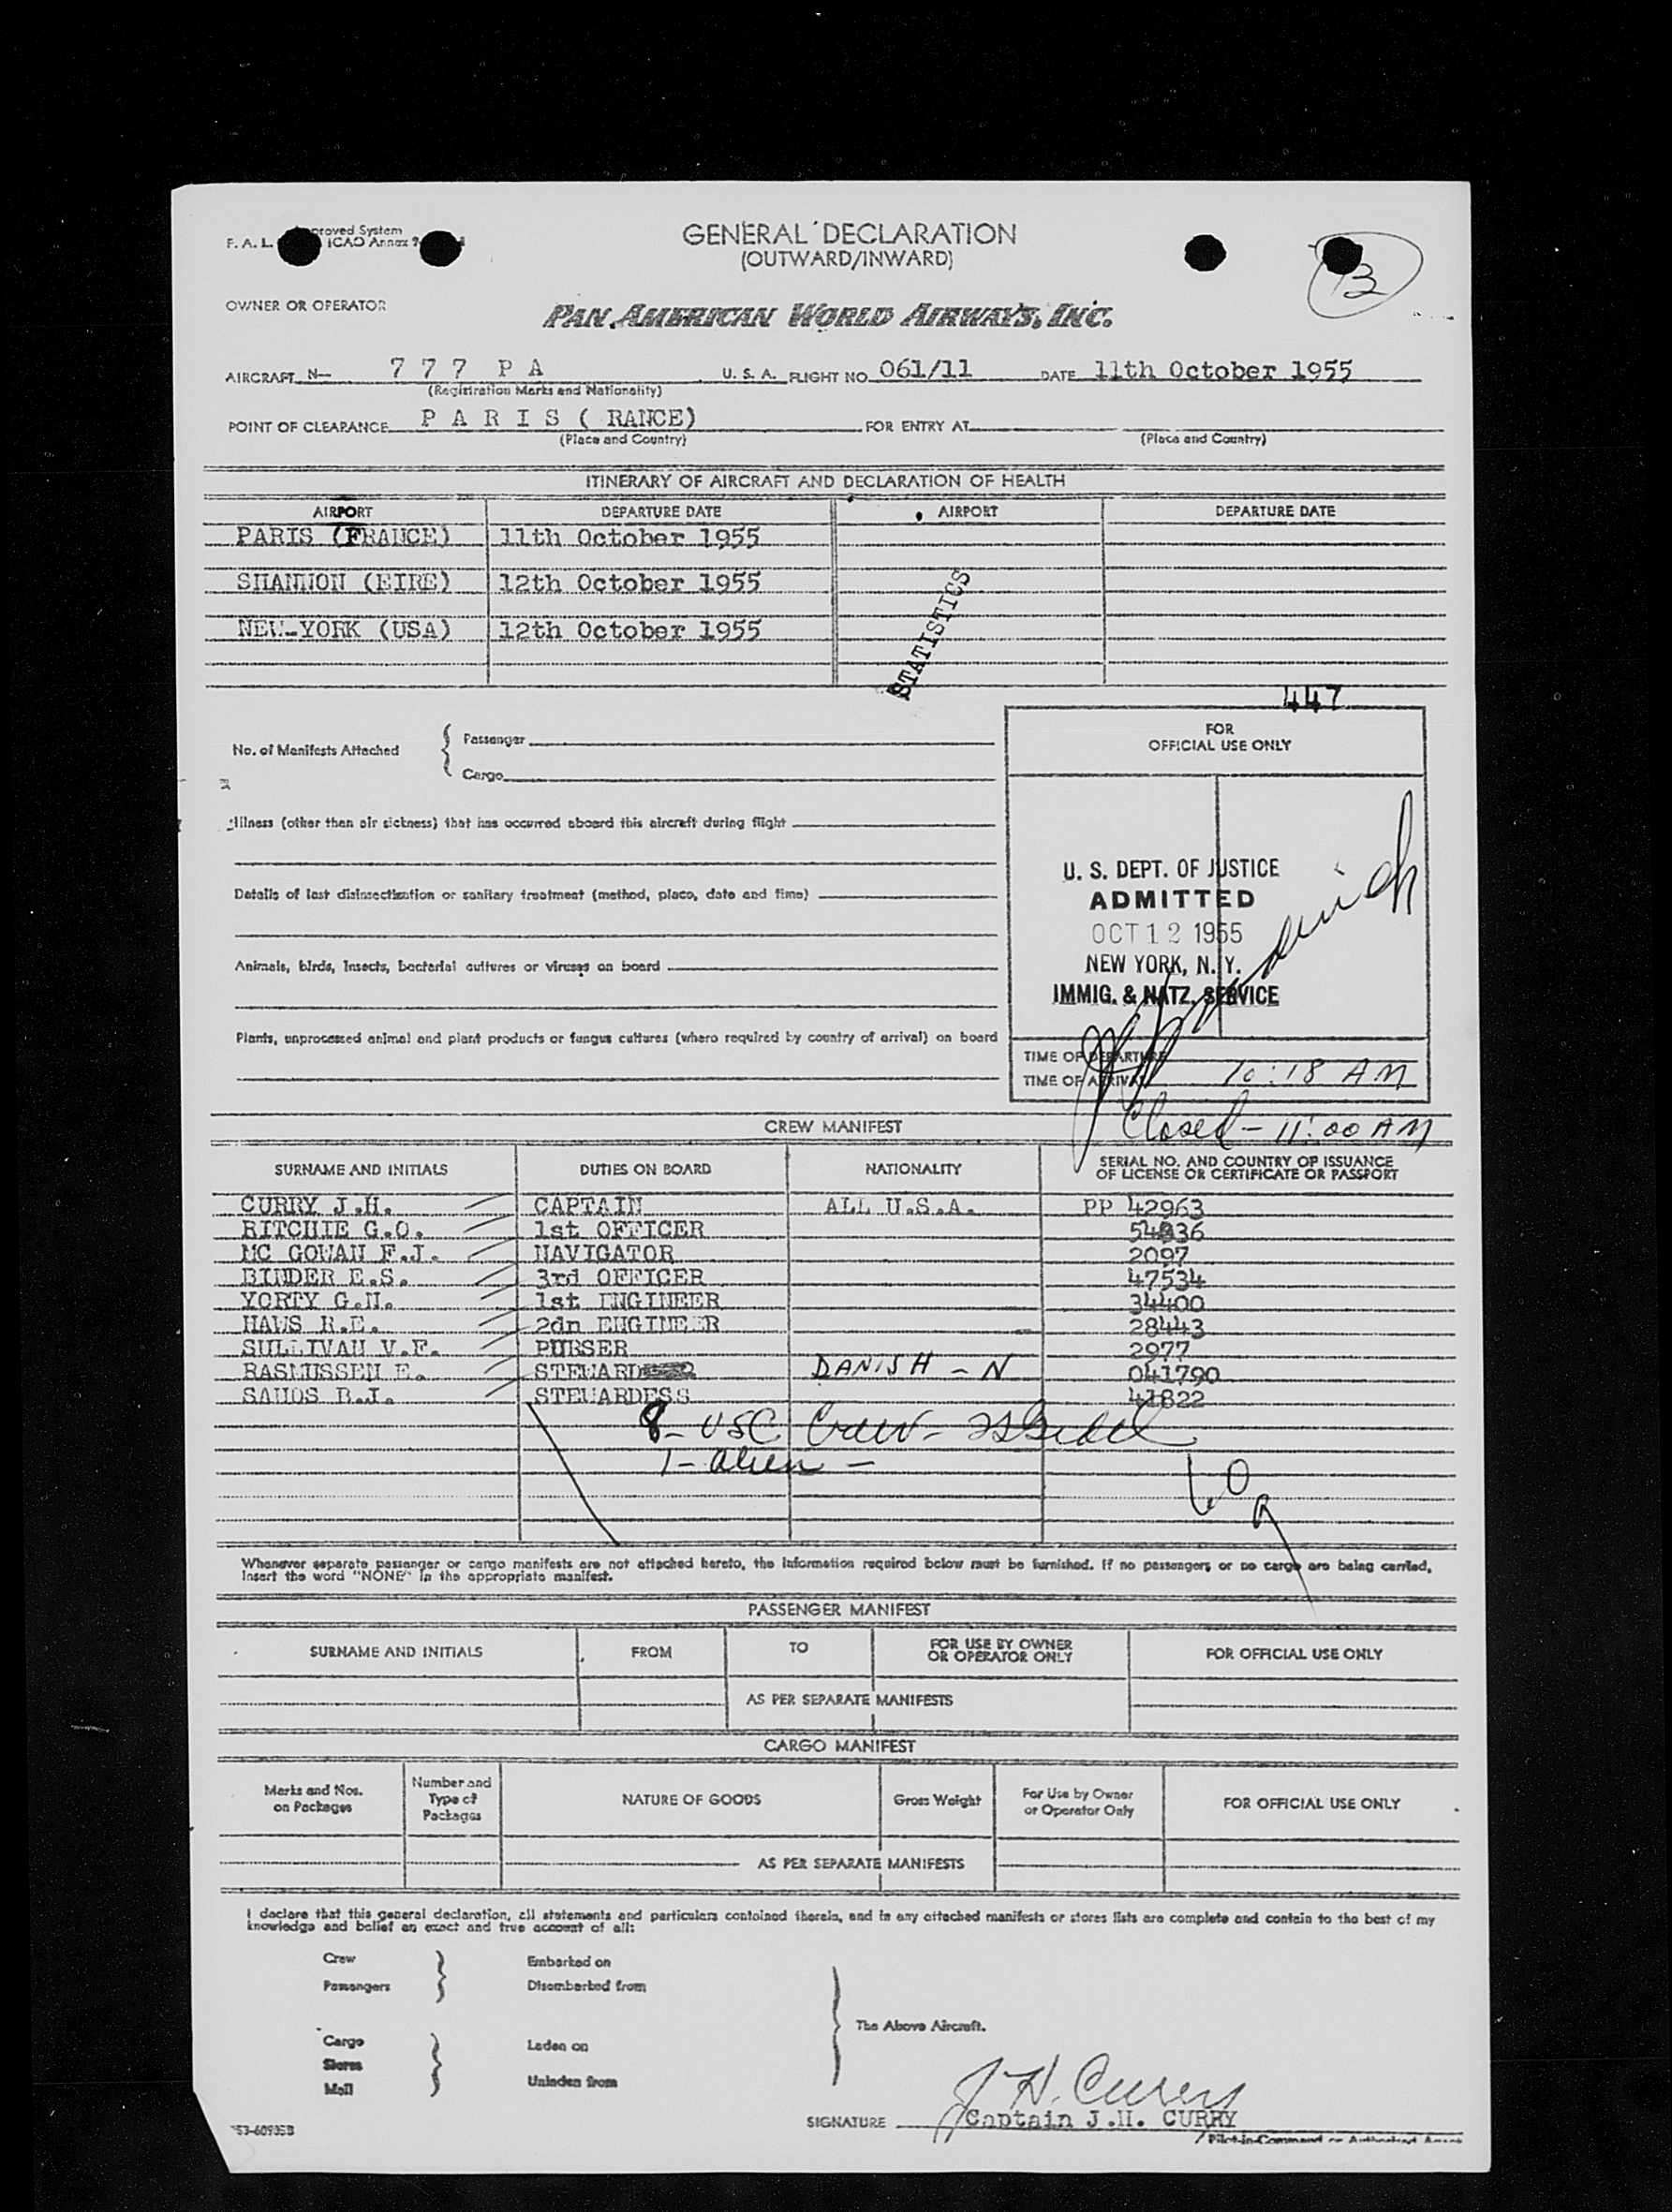 F. A. L. proved System
ICAO Annex 9
GENERAL DECLARATION
(OUTWARD/INWARD)
13
OWNER OR OPERATOR
PAN AMERICAN WORLD AIRWAYS, INC.
AIRCRAFT N— 7 7 7 P A U. S. A. FLIGHT NO 061/11 DATE 11th October 1955
(Registration Marks and Nationality)
POINT OF CLEARANCE P A R I S ( RANCE) FOR ENTRY AT
(Place and Country) (Place and Country)
ITINERARY OF AIRCRAFT AND DECLARATION OF HEALTH
AIRPORT DEPARTURE DATE AIRPORT DEPARTURE DATE
PARIS (FRANCE) 11th October 1955
SHANNON (EIRE) 12th October 1955
NEW-YORK (USA) 12th October 1955
STATISTICS
447
No. of Manifests Attached { Passenger
Cargo
FOR
OFFICIAL USE ONLY
Illness (other than air sickness) that has occurred aboard this aircraft during flight
Details of last disinsectization or sanitary treatment (method, place, date and time)
Animals, birds, insects, bacterial cultures or viruses on board
Plants, unprocessed animal and plant products or fungus cultures (where required by country of arrival) on board
U. S. DEPT. OF JUSTICE
ADMITTED
OCT 12 1955
NEW YORK, N. Y.
IMMIG. & NATZ. SERVICE
TIME OF DEPARTURE
TIME OF ARRIVAL 10:18 AM
Closed - 11:00 AM
CREW MANIFEST
SURNAME AND INITIALS DUTIES ON BOARD NATIONALITY SERIAL NO. AND COUNTRY OF ISSUANCE
OF LICENSE OR CERTIFICATE OR PASSPORT
CURRY J.H. CAPTAIN ALL U.S.A. PP 42963
RITCHIE G.O. 1st OFFICER
MC GOWAN F.J. NAVIGATOR 2097
BINDER E.S. 3rd OFFICER 47534
YORTY G.H. 1st ENGINEER 34400
HAWS R.E. 2dn ENGINEER 28443
SULLIVAN V.F. PURSER 2977
RASMUSSEN E. STEWARD DANISH - N 041790
SANDS B.J. STEWARDESS 41822
8 - USC Crew -
1 - alien -
Whenever separate passenger or cargo manifests are not attached hereto, the information required below must be furnished. If no passengers or no cargo are being carried,
insert the word "NONE" in the appropriate manifest.
PASSENGER MANIFEST
SURNAME AND INITIALS FROM TO FOR USE BY OWNER
OR OPERATOR ONLY FOR OFFICIAL USE ONLY
AS PER SEPARATE MANIFESTS
CARGO MANIFEST
Marks and Nos.
on Packages Number and
Type of
Packages NATURE OF GOODS Gross Weight For Use by Owner
or Operator Only FOR OFFICIAL USE ONLY
AS PER SEPARATE MANIFESTS
I declare that this general declaration, all statements and particulars contained therein, and in any attached manifests or stores lists are complete and contain to the best of my
knowledge and belief an exact and true account of all:
Crew Embarked on
Passengers Disembarked from
The Above Aircraft.
Cargo Laden on
Stores
Mail Unladen from
J H. Curry
SIGNATURE Captain J.H. CURRY
Pilot-in-Command or Authorized Agent